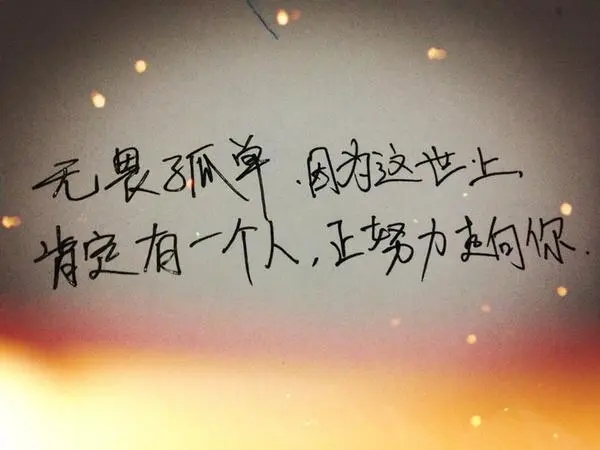 无畏孤单.因为这世上,
肯定有一个人,正努力走向你.